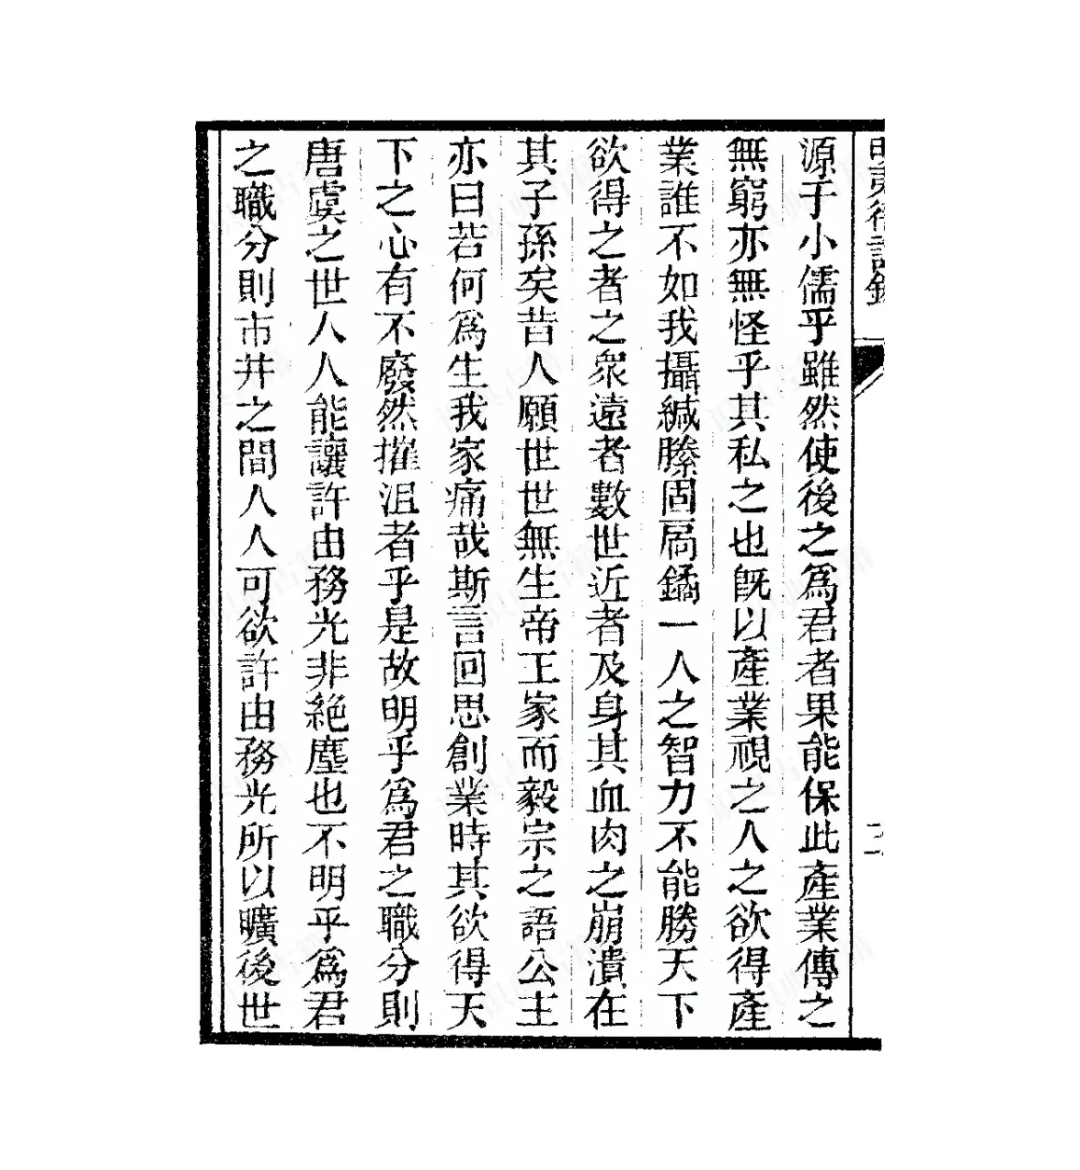 明夷待訪錄
源于小儒乎雖然使後之爲君者果能保此產業傳之
無窮亦無怪乎其私之也旣以產業視之人之欲得產
業誰不如我攝緘縢固扃鐍一人之智力不能勝天下
欲得之者之衆遠者數世近者及身其血肉之崩潰在
其子孫矣昔人願世世無生帝王家而毅宗之語公主
亦曰若何爲生我家痛哉斯言回思創業時其欲得天
下之心有不廢然摧沮者乎是故明乎爲君之職分則
唐虞之世人人能讓許由務光非絕塵也不明乎爲君
之職分則市井之間人人可欲許由務光所以曠後世